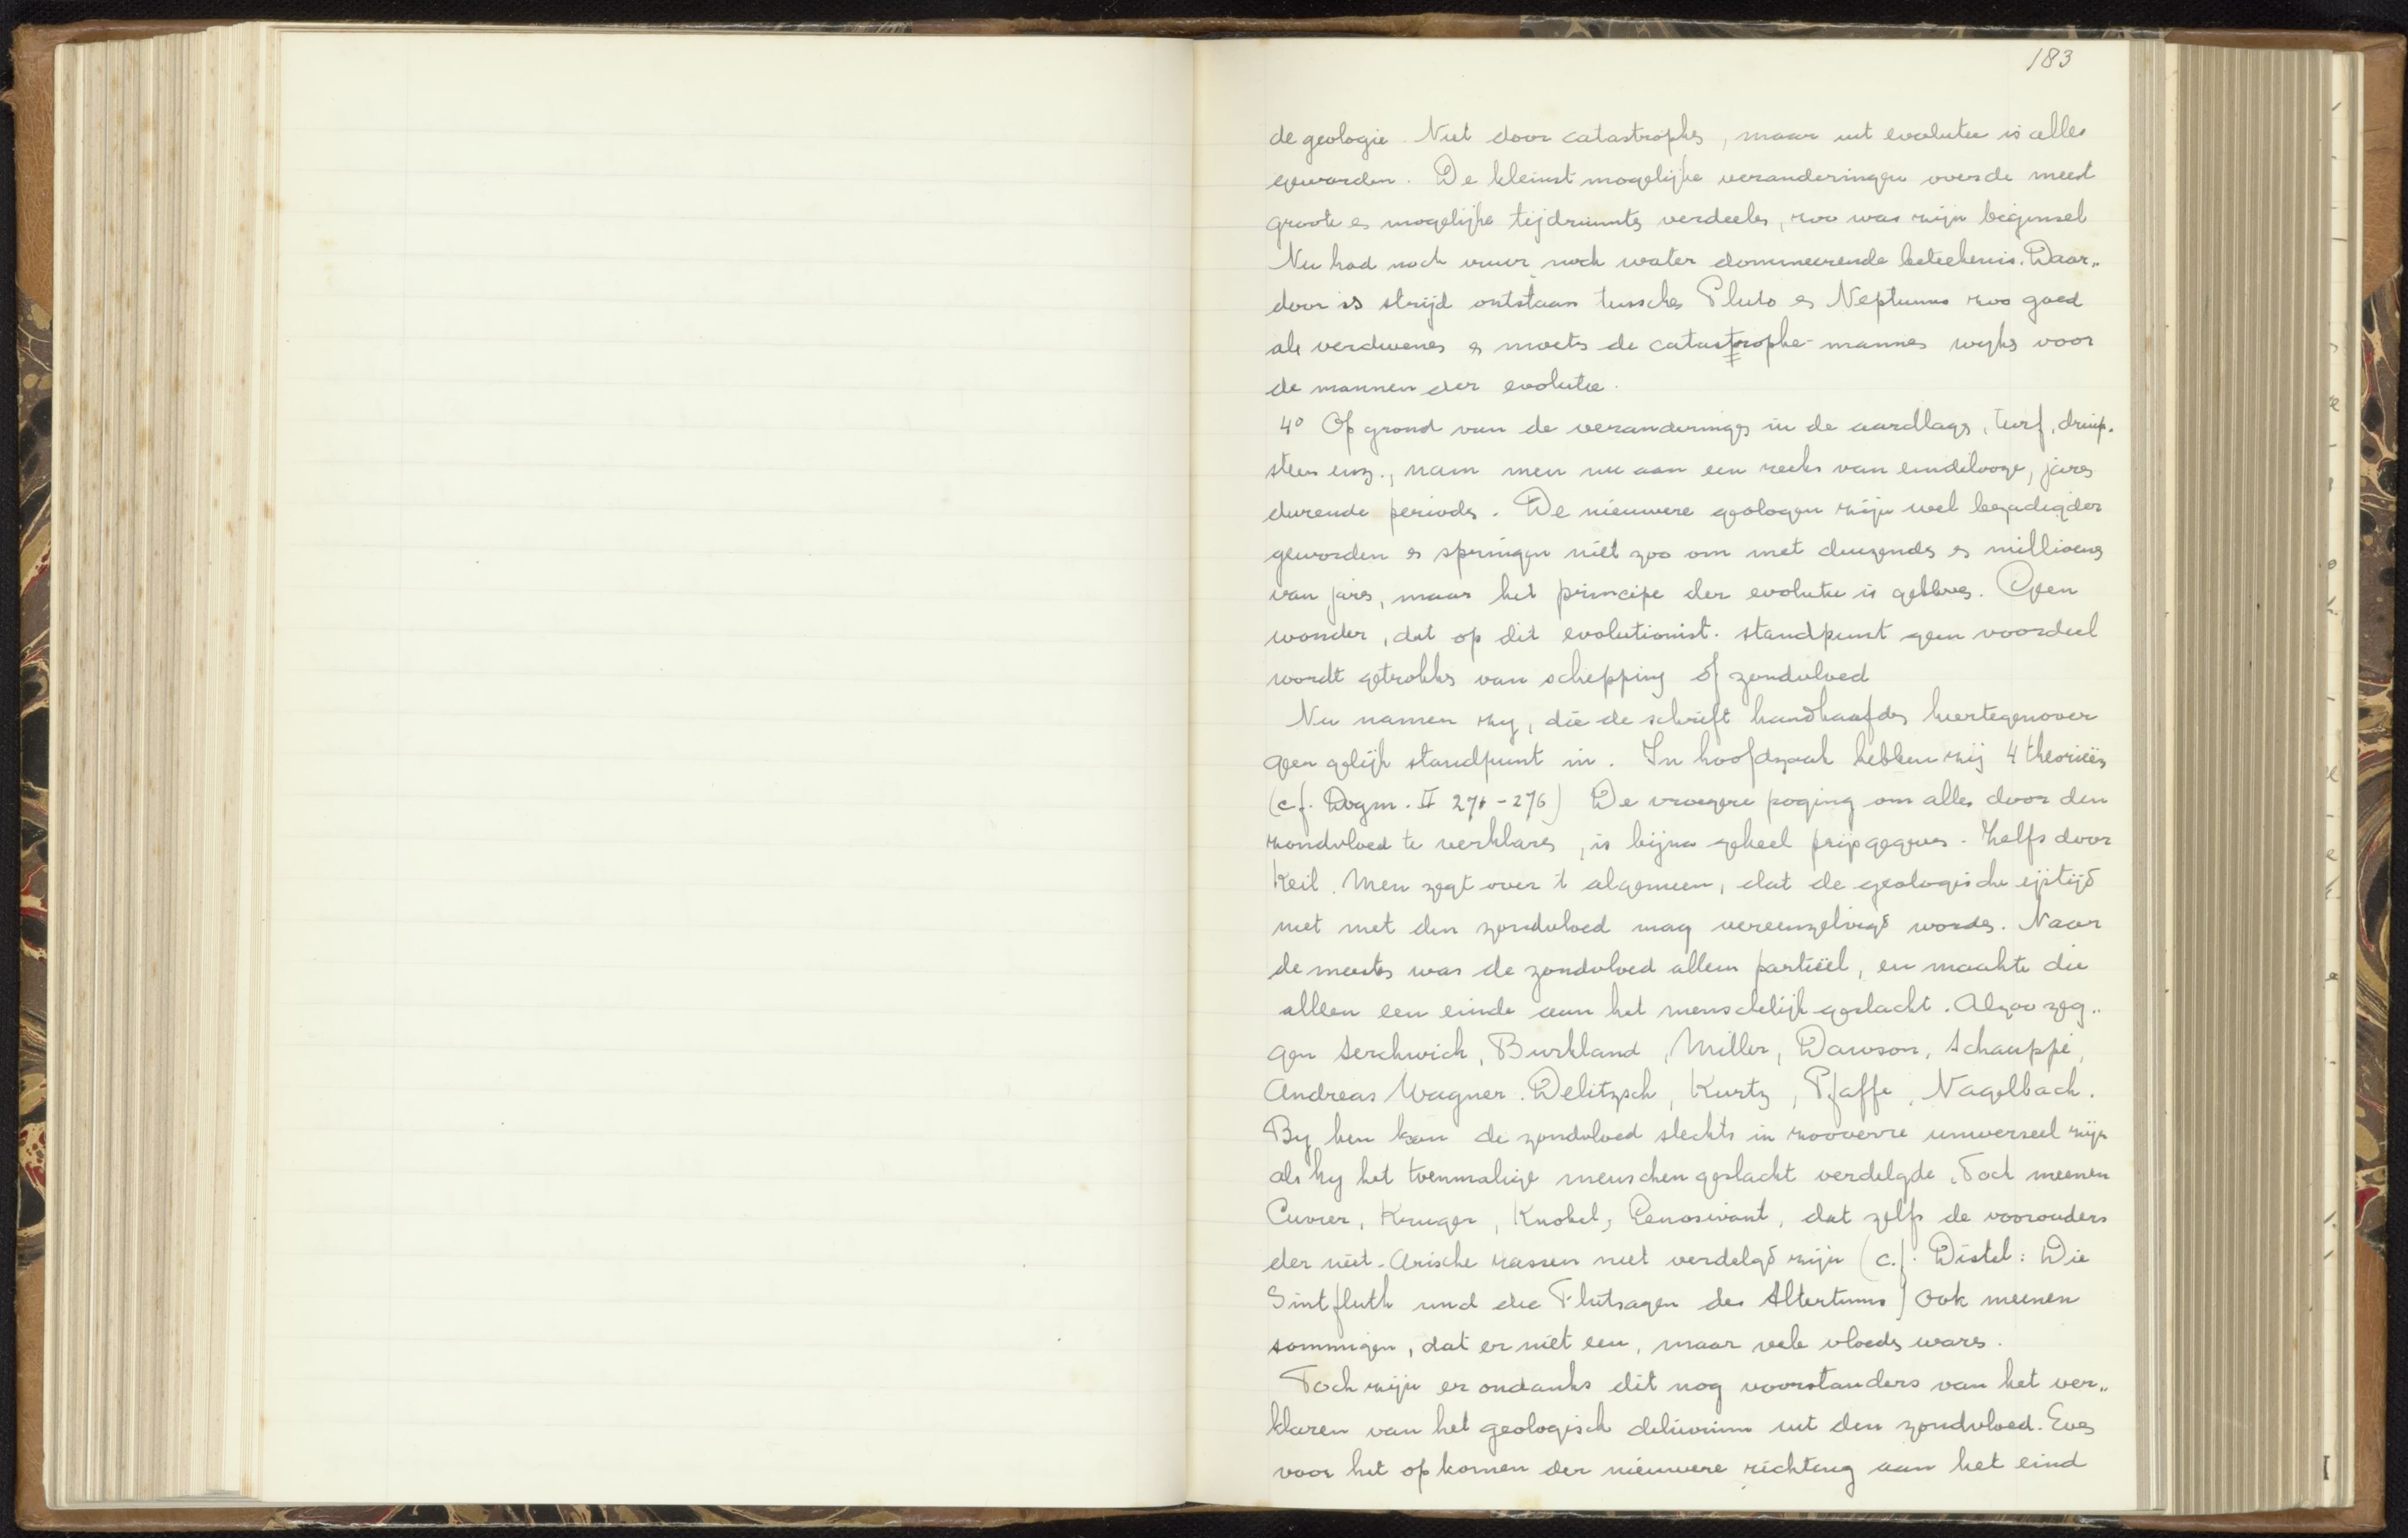 183
de geologie. Niet door catastrophes, maar uit evolutie is alles
geworden. De kleinst mogelijke veranderingen over de meest
groote en mogelijke tijdruimtes verdeelen, zoo was zijn beginsel
Nu had noch vuur, noch water domineerende beteekenis. Daar„
door is strijd ontstaan tusschen Pluto en Neptunus zoo goed
als verdwenen en moeten de catastrophe-mannen wijken voor
de mannen der evolutie.
4° Op grond van de veranderingen in de aardlagen, turf, druip.
steen enz., nam men nu aan een reeks van eindelooze, jaren
durende perioden. De nieuwere geologen zijn wel bezadigder
geworden en springen niet zoo om met duizenden en millioenen
van jaren, maar het principe der evolutie is gebleven. Geen
wonder, dat op dit evolutionist. standpunt geen voordeel
wordt getrokken van schepping of zondvloed
Nu namen zij, die de schrift handhaafden hiertegenover
geen gelijk standpunt in. In hoofdzaak hebben wij 4 theorieën
(c.f. Dogm. II 271-276) De vroegere poging om alles door den
zondvloed te verklaren, is bijna geheel prijsgegeven. Zelfs door
Keil. Men zegt over 't algemeen, dat de geologische ijstijd
niet met den zondvloed mag vereenzelvigd worden. Naar
de meesten was de zondvloed alleen partieël, en maakte die
alleen een einde aan het menschelijk geslacht. Alzoo zeg„
gen Serchwick, Burkland, Miller, Dawson, Schauppé,
Andreas Wagner. Delitzsch, Kurtz, Pfaffe, Nagelbach.
By hen kan de zondvloed slechts in zooverre universeel zijn
als hy het toenmalige menschengeslacht verdelgde. Toch meenen
Cuvier, Kruger, Knobel, Lenosivant, dat zelfs de voorouders
der niet-Arische rassen niet verdelgd zijn (c.f. Distel: Die
Sintfluth und die Flutsagen des Altertums) Ook meenen
sommigen, dat er niet een, maar vele vloeden waren.
Toch zijn er ondanks dit nog voorstanders van het ver„
klaren van het geologisch diluvium uit den zondvloed. Even
voor het opkomen der nieuwere richting aan het eind